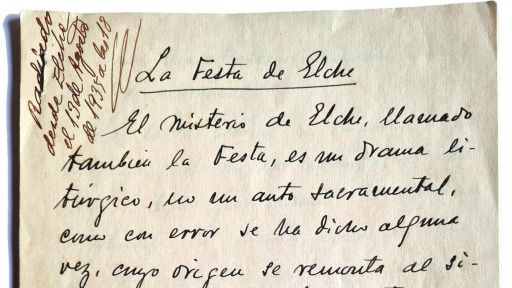 Radiado
desde Elche
el 13 de Agosto
de 1935 a las 18
La Festa de Elche
El misterio de Elche, llamado
tambien la Festa, es un drama li-
túrgico, no un auto sacramental,
como con error se ha dicho alguna
vez, cuyo origen se remonta al si-